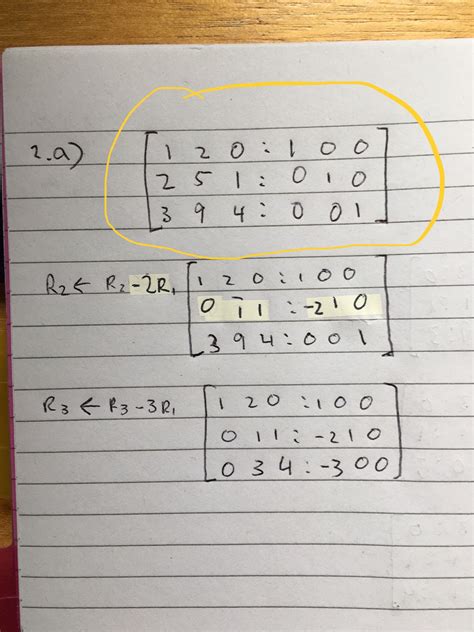 2.a) [1 2 0 : 1 0 0
2 5 1 : 0 1 0
3 9 4 : 0 0 1]
R2 ← R2 -2R1 [1 2 0 : 1 0 0
0 1 1 : -2 1 0
3 9 4 : 0 0 1]
R3 ← R3 - 3R1 [1 2 0 : 1 0 0
0 1 1 : -2 1 0
0 3 4 : -3 0 0]